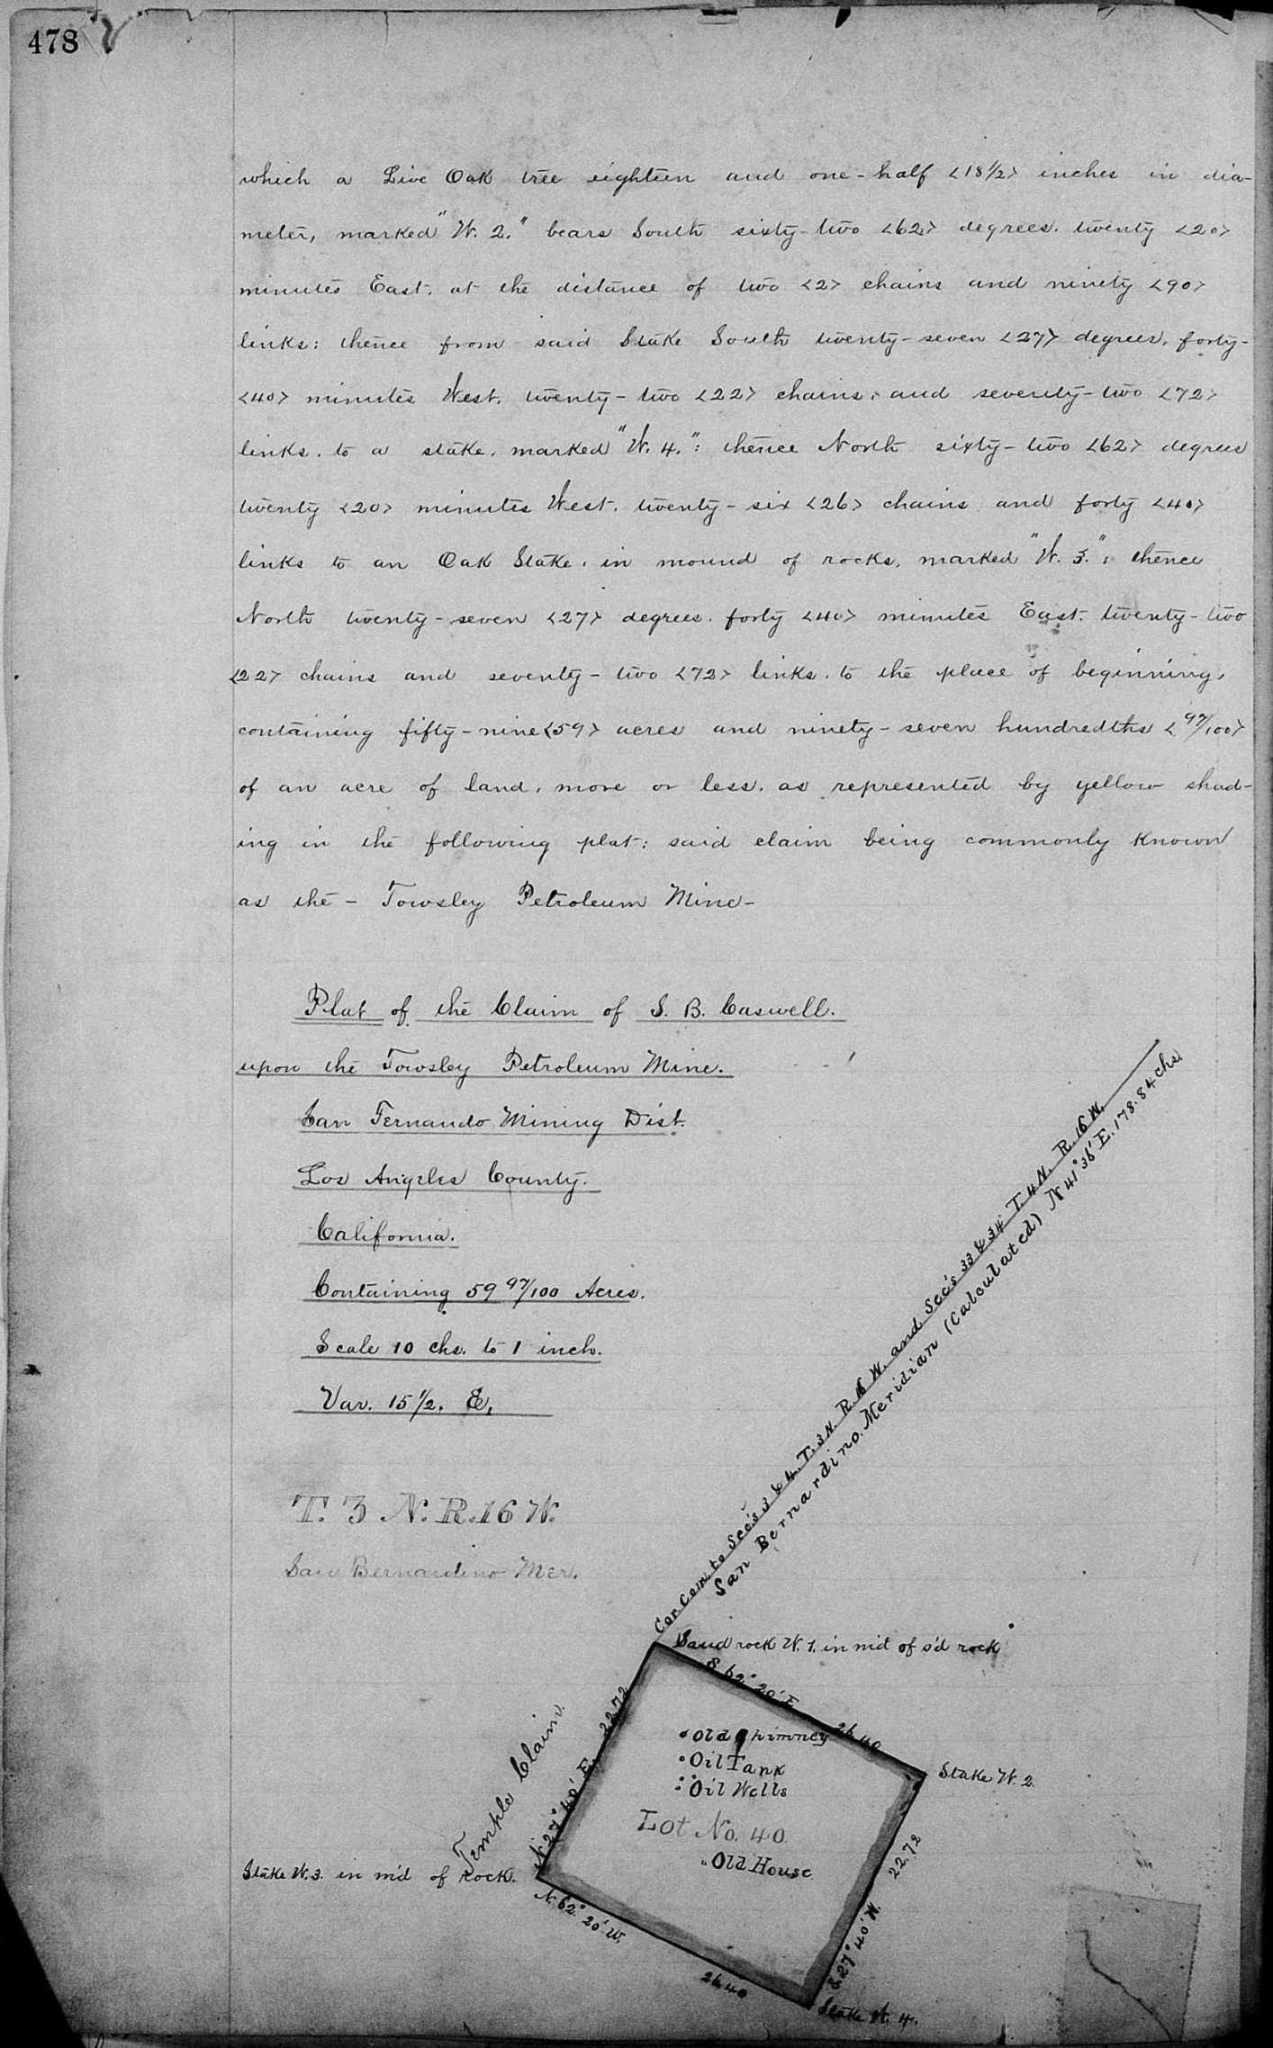 478
which a Live Oak tree eighteen and one-half <18 1/2> inches in dia-
meter, marked "W. 2." bears South sixty-two <62> degrees. twenty <20>
minutes East. at the distance of two <2> chains and ninety <90>
links: thence from said Stake South twenty-seven <27> degrees, forty-
<40> minutes West. twenty-two <22> chains, and seventy-two <72>
links. to a stake. marked "W. 4.": thence North sixty-two <62> degrees
twenty <20> minutes West. twenty-six <26> chains and forty <40>
links to an Oak Stake. in mound of rocks, marked "W. 3.", thence
North twenty-seven <27> degrees. forty <40> minutes East. twenty-two
<22> chains and seventy-two <72> links. to the place of beginning,
containing fifty-nine <59> acres and ninety-seven hundredths <97/100>
of an acre of land. more or less. as represented by yellow shad-
ing in the following plat: said claim being commonly known
as the - Towsley Petroleum Mine-
Plat of the Claim of S. B. Caswell.
upon the Towsley Petroleum Mine.
San Fernando Mining Dist.
Los Angeles County.
California.
Containing 59 97/100 Acres.
Scale 10 chs. to 1 inch.
Var. 15 1/2. E.
T. 3 N. R. 16 W.
San Bernardino Mer.
Cor Com to Sec's 3 & 4. T. 3 N. R. 16 W. and Sec's 33 & 34 T. 4 N. R. 16 W.
San Bernardino Meridian (Calculated) N 41° 36' E. 178.84 chs
Sand rock W. 1. in m'd of s'd rock
S. 62° 20' E. 26.40
N 27° 40' E. 22.72
Temple Claim.
Old Chimney
Oil Tank
Oil Wells
Lot No. 40
Old House
Stake W. 2
22.72
S. 27° 40' W.
Stake W. 3. in m'd of Rock.
N. 62° 20' W.
26.40
Stake W. 4.